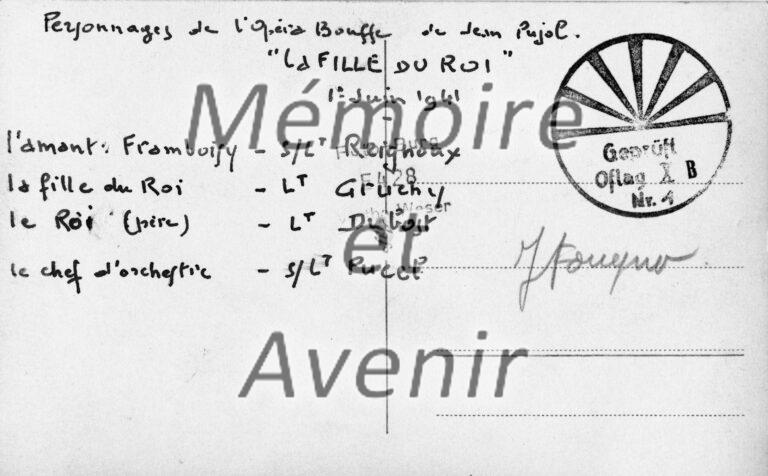 Personnages de l'Opéra Bouffe de Jean Pujol.
"LA FILLE DU ROI"
1er Juin 1941
l'amant: Framboisy - S/LT
la fille du Roi - LT Gruchy
le Roi (père) - LT
le chef d'orchestre - S/LT Pucet
Geprüft
Oflag X B
Nr. 1
Mémoire
et
Avenir